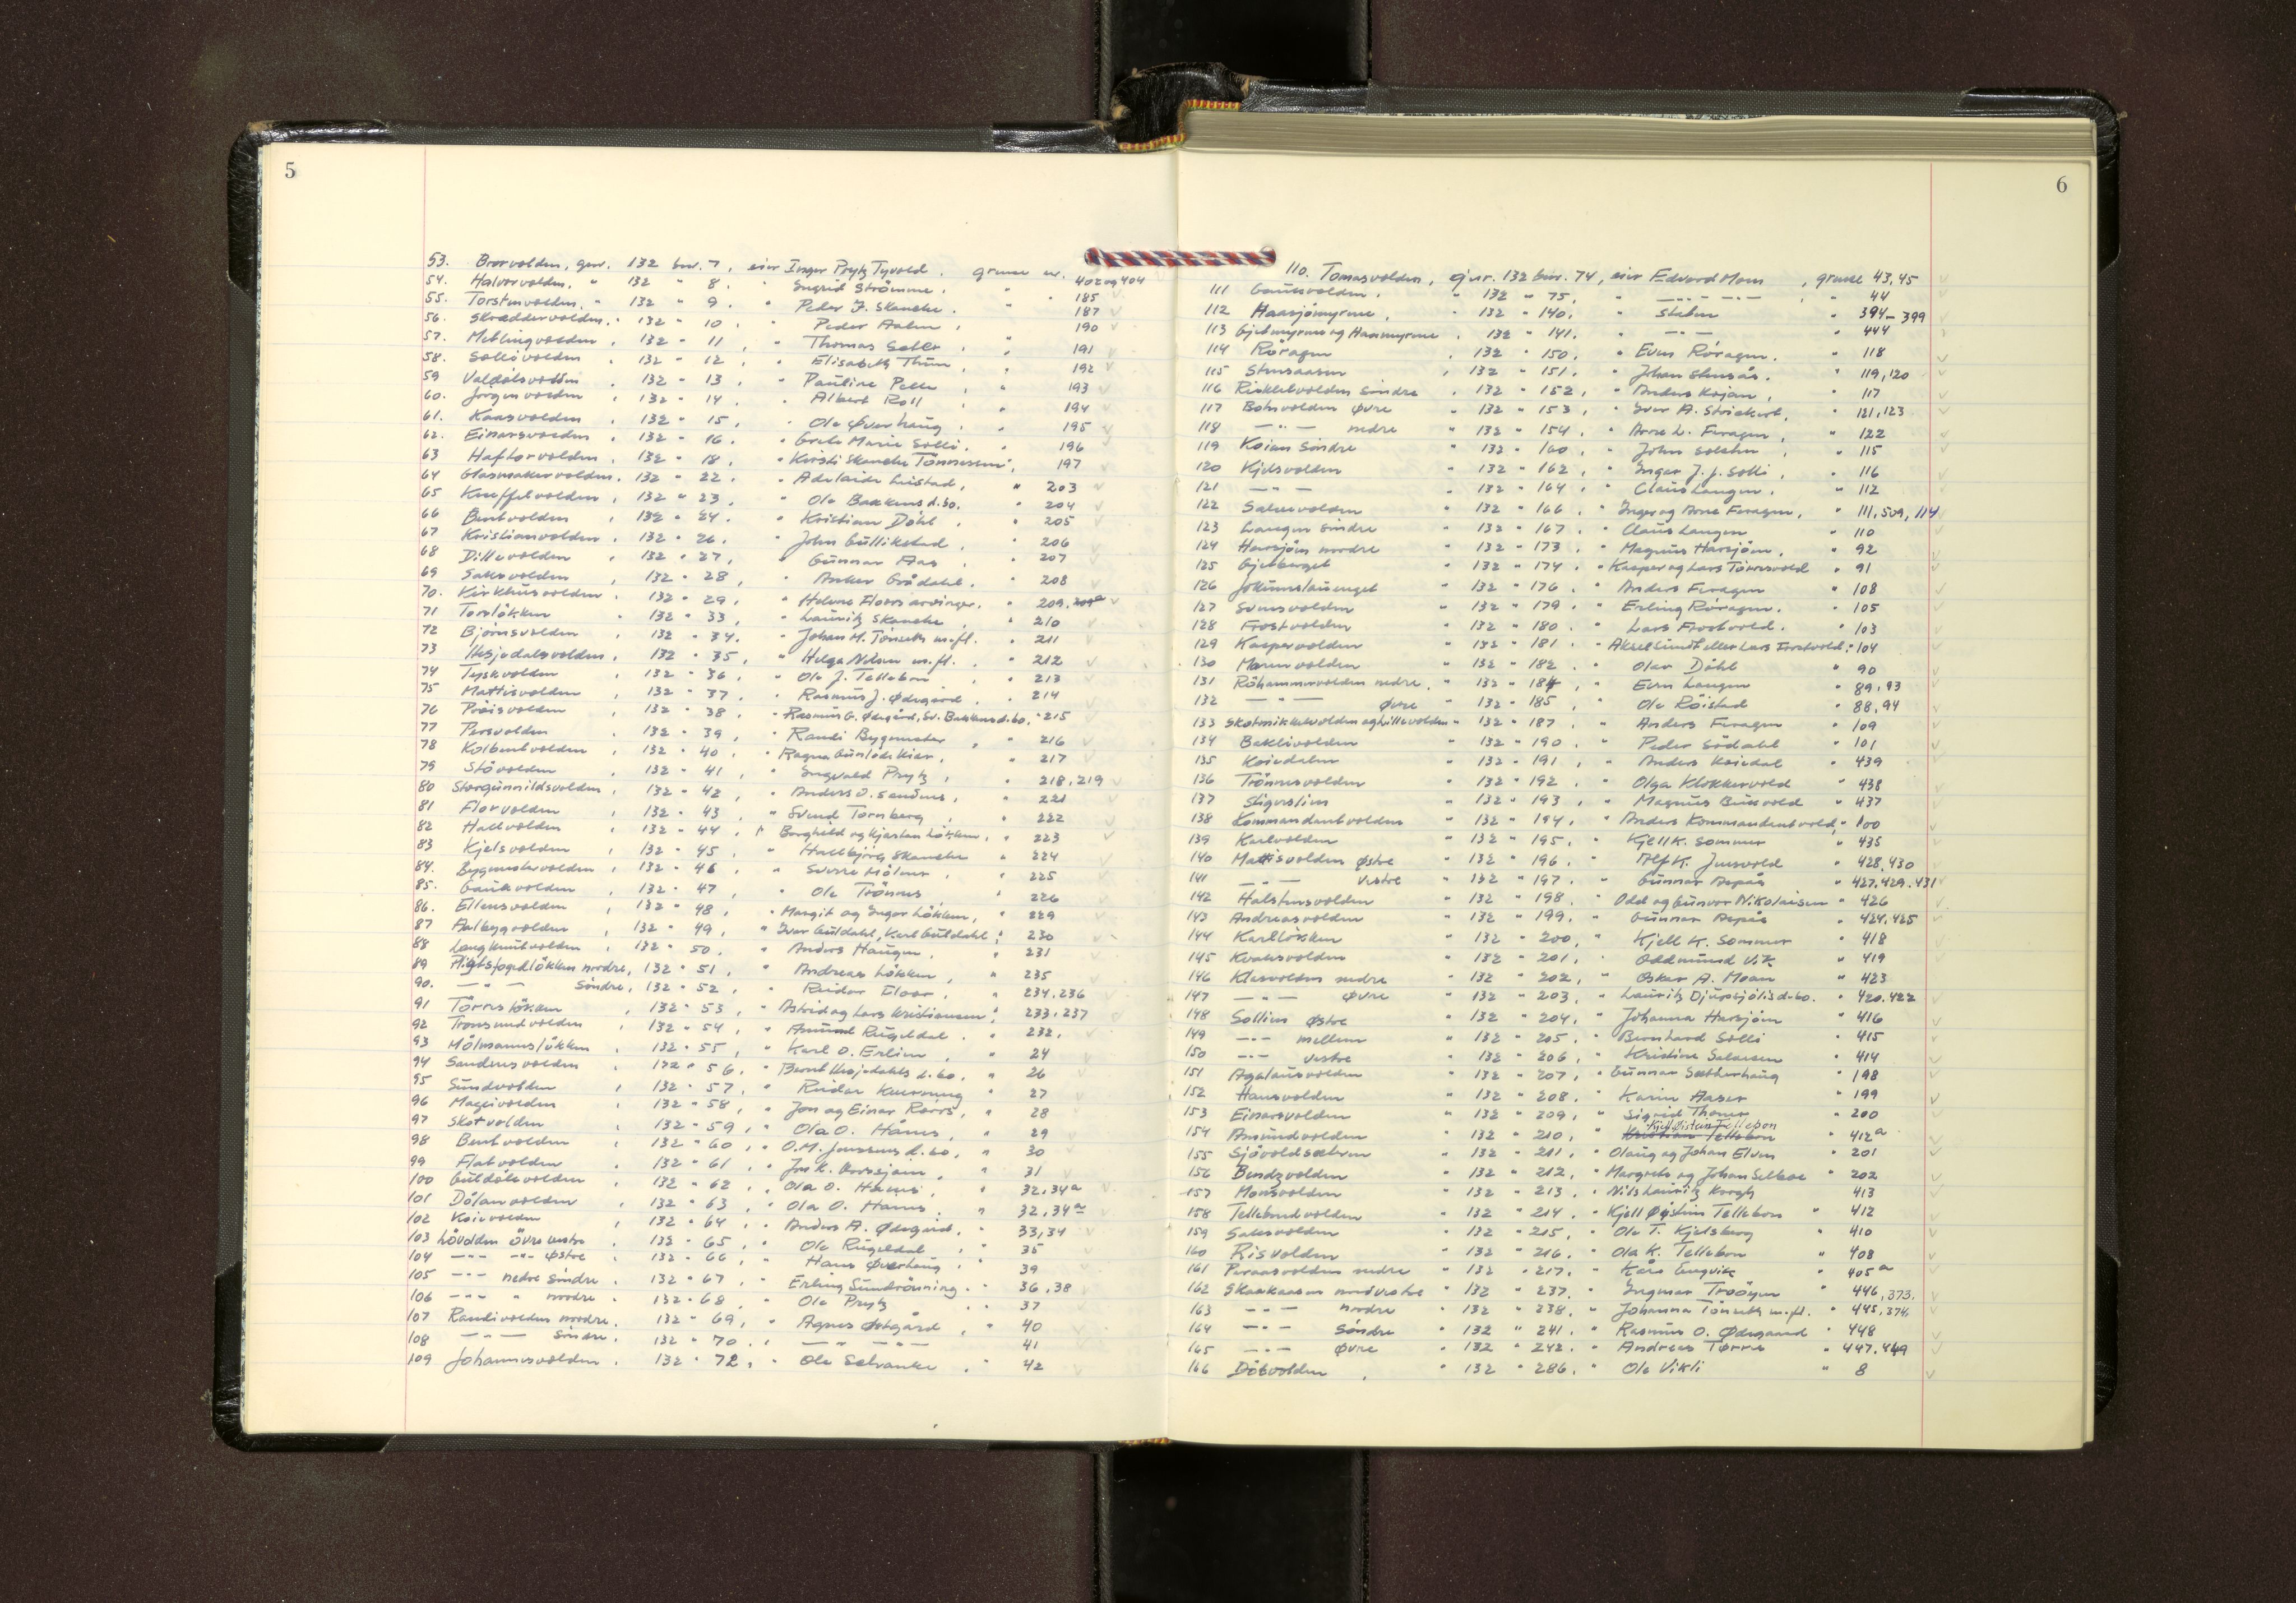 5
53. Brorvolden, gnr. 132 bnr. 7, eier Inger Prytz Tyvold, grunne nr. 402 og 404
54. Halvorvolden, " 132 " 8, " Ingrid Strömme, " 185
55. Torstenvolden, " 132 " 9, " Peder J. Skancke, " 187
56. Skreddervolden, " 132 " 10, " Peder Aalen, " 190
57. Meblingvolden, 132 " 11, " Thomas Sæter, " 191
58. Sollivolden, 132 " 12, " Elisabeth Thun, " 192
59 Valdålsvolden, 132 " 13, " Pauline Pelle, " 193
60. Jörgenvolden, 132 " 14, " Albert Roll, " 194
61. Kaasvolden, 132 " 15, " Ole Øverhaug, " 195
62. Einarsvolden, 132 " 16, " Grete Marie Solli, " 196
63 Haftorvolden, 132 " 18, " Kirsti Skancke Tönnesen, " 197
64 Glasmakervolden, 132 " 22, " Adelaide Leistad, " 203
65 Kneffelvolden, 132 " 23, " Ole Bakkens d.bo, " 204
66 Bentvolden, 132 " 24, " Kristian Dahl, " 205
67 Kristianvolden, 132 " 26, " John Gullikstad, " 206
68 Dillevolden, 132 " 27, " Gunnar Aas, " 207
69 Saksvolden, 132 " 28, " Anker Grådahl, " 208
70. Kirkhusvolden, 132 " 29, " Helene Floors arvinger, " 209, 209a
71 Torslökken " 132 " 33, " Lauritz Skancke, " 210
72 Björnsvolden, 132 " 34, " Johan H. Tönseth m.fl. " 211
73 Hesjedalsvolden, 132 " 35, " Helga Nilsen m.fl. " 212
74 Tyskvolden, 132 " 36, " Ole J. Tellebon, " 213
75 Mattisvolden, 132 " 37, " Rasmus J. Ødegård, " 214
76 Pröisvolden, 132 " 38, " Rasmus G. Ødegård, Sv. Bakkens d.bo, " 215
77 Persvolden, 132 " 39, " Randi Bygmester, " 216
78 Kolbentvolden, 132 " 40, " Ragna Gunlöde Kier, " 217
79 Stövolden, 132 " 41, " Ingvald Prytz, " 218, 219
80 Storgunnildsvolden, 132 " 42, " Anders O. Sandnes, " 221
81 Florvolden, 132 " 43, " Svend Tornberg, " 222
82 Hallvolden, 132 " 44, " Borghild og Kjersten Lökken, " 223
83 Kjelsvolden, 132 " 45, " Hallbjörg Skancke " 224
84. Bygmestervolden, 132 " 46, " Sverre Hólmer, " 225
85. Gaukvolden, 132 " 47, " Ole Trönnes, " 226
86. Ellensvolden, 132 " 48, " Margit og Inger Lökken, " 229
87 Aalbygvolden, 132 " 49, " Iver Guldahl, Karl Guldahl, " 230
88 Langknutvolden, 132 " 50, " Anders Haugen, " 231
89 Pligtsfogedlökken nordre, 132 " 51, " Andreas Lökken, " 235
90. — " — Söndre, 132 " 52, " Reidar Floor, " 234, 236
91 Törreslökken, 132 " 53, " Astrid og Lars Kristiansen, " 233, 237
92 Tronsundvolden, 132 " 54, " Amund Rugeldal, " 232,
93 Holmannslökken, 132 " 55, " Karl O. Erlien, " 24
94 Sandnesvolden, 132 " 56, " Bernt Hesjedahls d.bo, " 26
95 Sundvolden, 132 " 57, " Reidar Kverneng " 27
96 Magnivolden, 132 " 58, " Jon og Einar Rörrs, " 28
97 Skotvolden, 132 " 59, " Ola O. Hånes, " 29
98 Bentvolden, 132 " 60, " O.M. Jenssens d.bo, " 30
99 Flatvolden, 132 " 61, " Jon K. Orvssjøen, " 31
100 Guldålsvolden, 132 " 62, " Ola O. Hånes, " 32, 34a
101 Dölanvolden, 132 " 63, " Ola O. Hånes, " 32, 34a
102 Koievolden, 132 " 64, " Anders A. Ødegård, " 33, 34
103 Lövolden övre vestre, 132 " 65, " Ole Rugeldal, " 35
104 — " — — " — østre, 132 " 66, " Hans Øverhaug, " 39
105 — " — nedre söndre, 132 " 67, " Erling Sundrönning, " 36, 38
106 — " — " nordre, 132 " 68, " Ole Prytz, " 37
107 Randivolden nordre, 132 " 69, " Agnes Østgård, " 40
108 — " — Söndre, 132 " 70, " — " — — " — 41
109 Johannesvolden, 132 " 72, " Ole Schanke, " 42
6
110. Tomasvolden, gnr. 132 bnr. 74, eier Edvard Moen, grunne 43, 45
111 Gauesvolden, " 132 " 75, " — " — — " —, " 44
112 Haasjömyrene, " 132 " 140, " Staten " 394-399
113 Gjetmyrene og Haasmyrene, 132 " 141, " — " — " 444
114 Röragen, 132 " 150, " Even Röragen, " 118
115 Stensaasen, 132 " 151, " Johan Stensås, " 119, 120
116 Risklebvolden Söndre, 132 " 152, " Anders Kojan, " 117
117 Botnvolden Øvre " 132 " 153, " Iver A. Strickert, " 121, 123
118 — " — nedre " 132 " 154, " Arne L. Feragen, " 122
119 Koian Söndre " 132 " 160, " John Solehn, " 115
120 Kjelsvolden " 132 " 162, " Inger J. J. Solli, " 116
121 — " — " 132 " 164, " Claus Langen, " 112
122 Salsesvolden " 132 " 166, " Inger og Arne Feragen, " 111, 509, 114
123 Langen Söndre " 132 " 167, " Claus Langen " 110
124 Harsjöen nordre " 132 " 173, " Magnus Harsjöen, " 92
125 Gjetberget " 132 " 174, " Kasper og Lars Törresvold " 91
126 Jokumslauenget " 132 " 176, " Anders Feragen " 108
127 Svensvolden " 132 " 179, " Erling Röragen, " 105
128 Frostvolden " 132 " 180, " Lars Frostvold, " 103
129 Kaspervolden " 132 " 181, " Aksel Sundt eller Lars Frostvold, " 104
130 Marenvolden " 132 " 182, " Olav Dahl " 90
131 Röhammervolden nedre, " 132 " 184, " Even Langen " 89, 93
132 — " — øvre " 132 " 185, " Ole Röistad " 88, 94
133 Skotnikkelvolden og Lillevolden " 132 " 187, " Anders Feragen " 109
134 Baklivolden " 132 " 190, " Peder Södahl " 101
135 Koiedalen " 132 " 191, " Anders Koiedal " 439
136 Trönnesvolden " 132 " 192, " Olga Klokkervold " 438
137 Stigerslien " 132 " 193, " Magnus Buevold " 437
138 Kommandantvolden " 132 " 194, " Anders Kommandantvold, " 100
139 Karlvolden " 132 " 195, " Kjell K. Sommer " 435
140 Mattisvolden Østre " 132 " 196, " Alf K. Jensvold " 428, 430
141 — " — Vestre " 132 " 197, " Gunnar Aspås " 427, 429, 431
142 Halstensvolden " 132 " 198, " Odd og Gunvor Nikolaisen " 426
143 Andreasvolden " 132 " 199, " Gunnar Aspås " 424, 425
144 Karllökken " 132 " 200, " Kjell K. Sommer " 418
145 Kvaksvolden " 132 " 201, " Oddmund Vik " 419
146 Klasvolden nedre " 132 " 202, " Oskar A. Moan " 423
147 — " — øvre " 132 " 203, " Lauritz Djupsjölis d.bo. " 420, 422
148 Sollien Østre " 132 " 204, " Johanna Harsjöen " 416
149 — " — mellem " 132 " 205, " Bernhard Solli " 415
150 — " — vestre " 132 " 206, " Kristine Salasen " 414
151 Agelausvolden " 132 " 207, " Gunnar Sætherhaug " 198
152 Hansvolden " 132 " 208, " Karin Aaser " 199
153 Einarsvolden " 132 " 209, " Sigrid Thomes " 200
Kjell Øistein Tellebon
154 Amundvolden " 132 " 210, " Kristian Tellebon " 412a
155 Sjövoldsæteren " 132 " 211, " Olaug og Johan Elven " 201
156 Bendzvolden " 132 " 212, " Margrete og Johan Selboe " 202
157 Monsvolden " 132 " 213, " Nils Lauritz Krogh 413
158 Tellebondvolden " 132 " 214, " Kjell Øystein Tellebon " 412
159 Saksvolden " 132 " 215, " Ole T. Kjelsberg " 410
160 Risvolden " 132 " 216, " Ola K. Tellebon " 408
161 Peraasvolden nedre " 132 " 217, " Kåre Engvik " 405a
162 Skaakaasen nordvestre " 132 " 237, " Ingmar Tröögen " 446, 373.
163 — " — nordre " 132 " 238, " Johanna Tönseth m.fl. " 445, 374
164 — " — Söndre " 132 " 241, " Rasmus O. Ødegaard " 448
165 — " — øvre " 132 " 242, " Andreas Tørres " 447, 449
166 Döbvolden, " 132 " 286, " Ole Vikli " 8